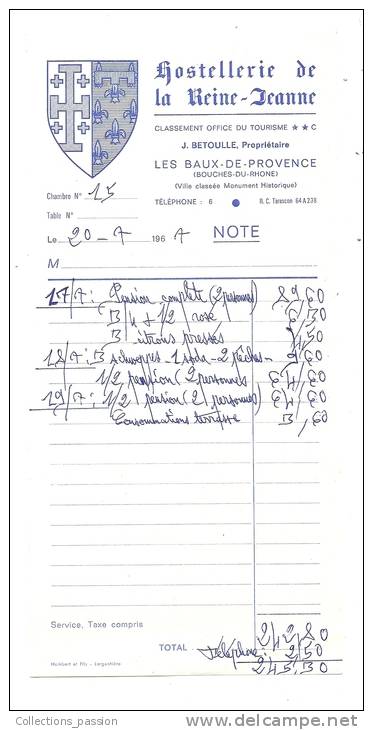 Hostellerie de
la Reine-Jeanne
CLASSEMENT OFFICE DU TOURISME ★★ C
J. BETOULLE, Propriétaire
LES BAUX-DE-PROVENCE
(BOUCHES-DU-RHONE)
(Ville classée Monument Historique)
Chambre N° 15
TÉLÉPHONE : 6 R. C. Tarascon 64 A 238
Table N°
Le 20-7 1967 NOTE
M
17/7: Pension complète (2 personnes)
1/2 rosé
citrons pressés
18/7: schweppes - 1 soda - 2 pêches
1/2 pension (2 personnes
19/7: 1/2 pension (2 personnes)
Consommations terrasse
Service, Taxe compris
242,80
TOTAL téléphone: 2,50
245,30
Humbert et Fils - Largentière
Collections_passion
www.delcampe.net